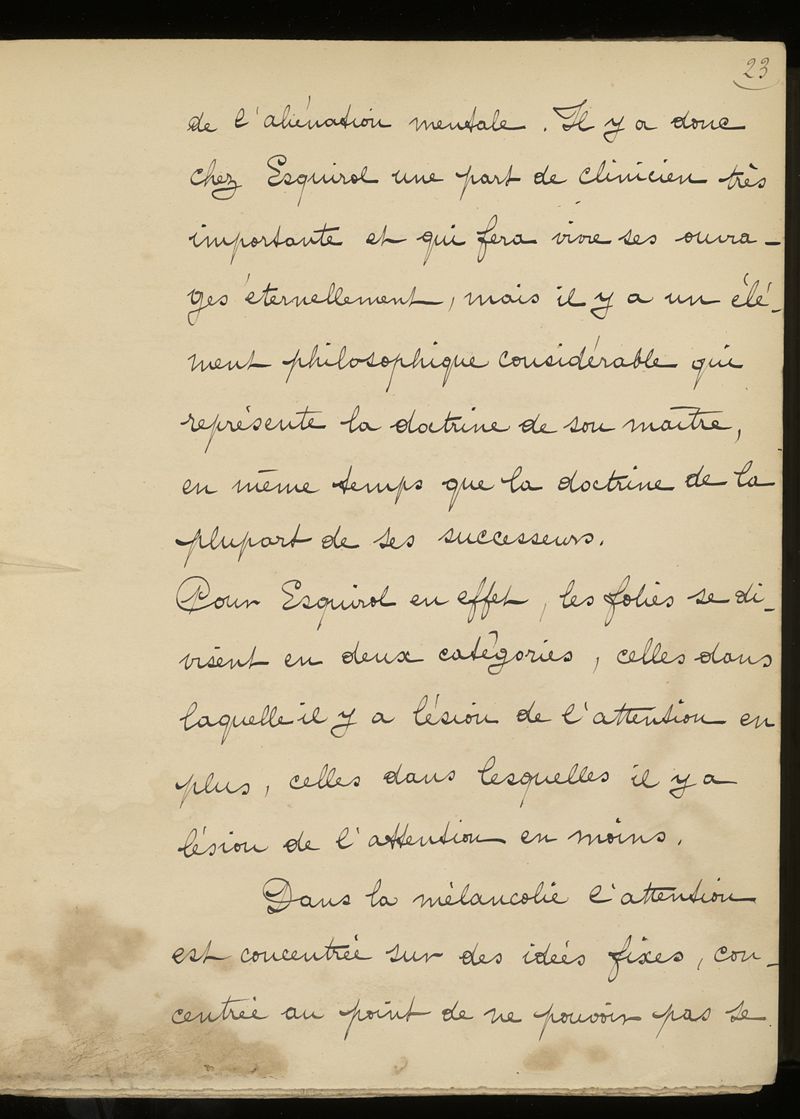 23
de l'aliénation mentale. Il y a donc
chez Esquirol une part de clinicien très
importante et qui fera vivre ses ouvra-
ges éternellement, mais il y a un élé-
ment philosophique considérable qui
représente la doctrine de son maître,
en même temps que la doctrine de la
plupart de ses successeurs.
Pour Esquirol en effet, les folies se di-
visent en deux catégories, celles dans
laquelle il y a lésion de l'attention en
plus, celles dans lesquelles il y a
lésion de l'attention en moins.
Dans la mélancolie l'attention
est concentrée sur des idées fixes, con-
centrée au point de ne pouvoir pas se